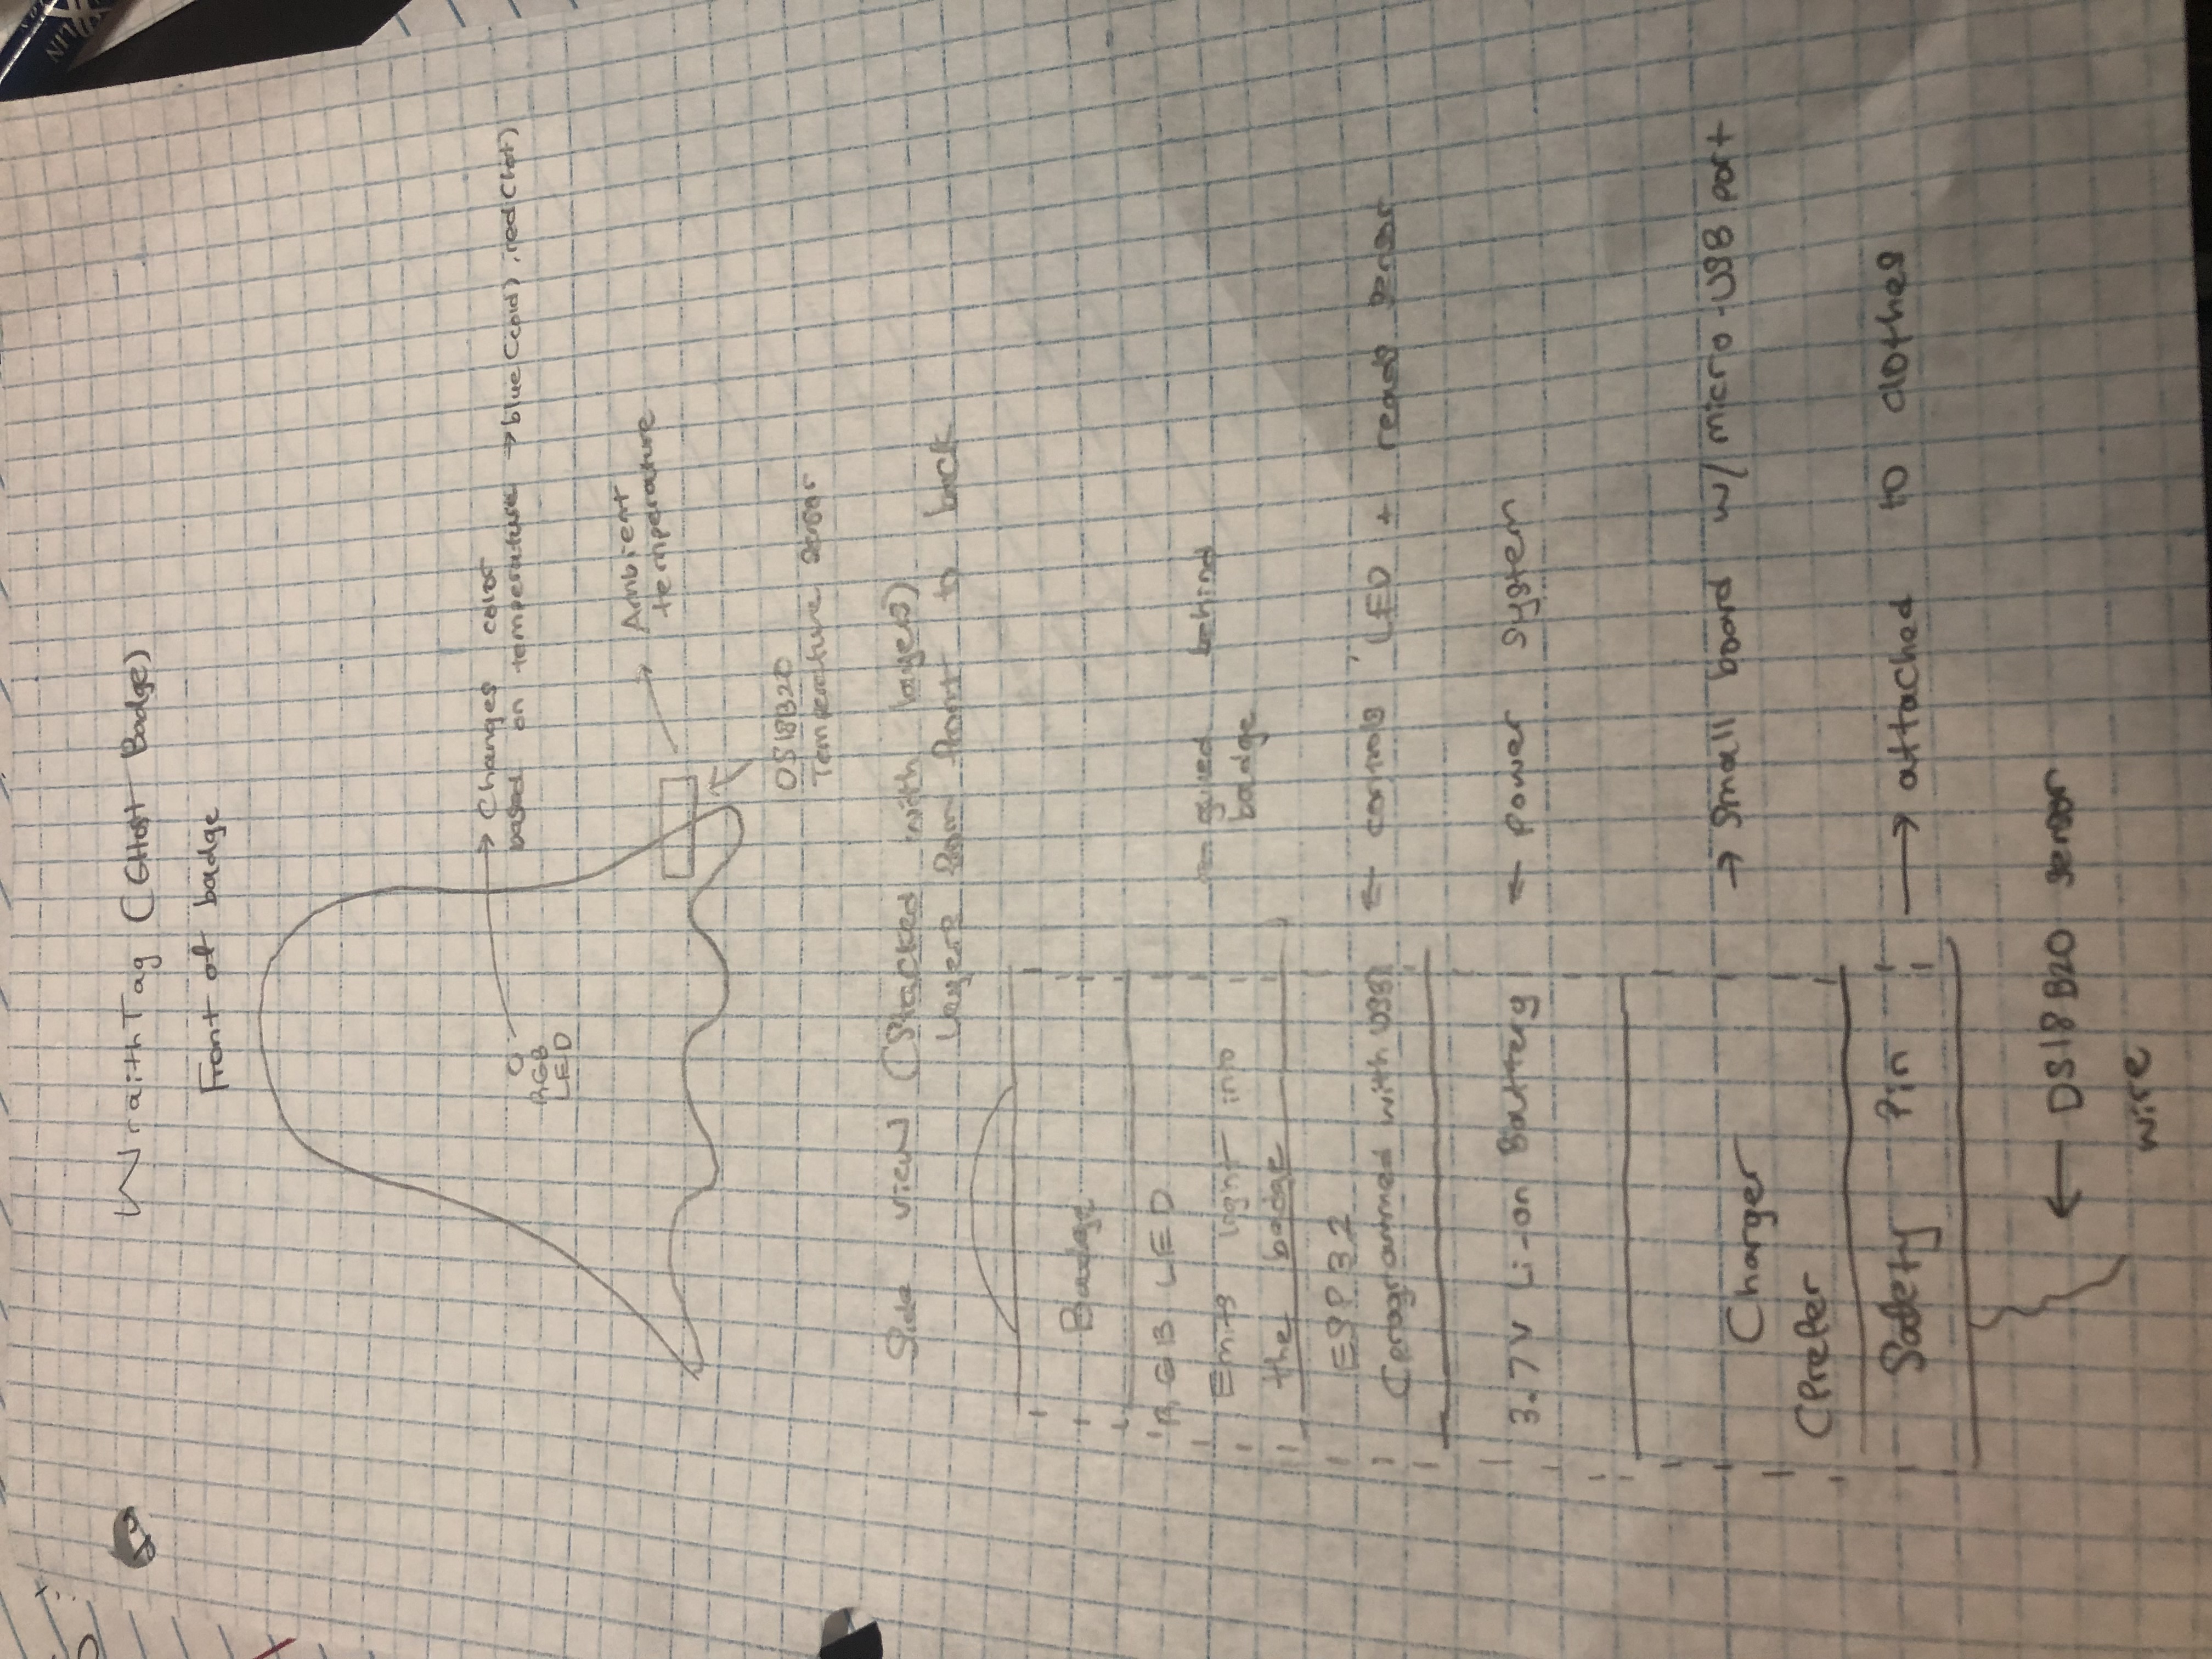 WraithTag (GHost Badge)
Front of badge
Changes color
based on temperature → blue (cold), red (hot)
RGB
LED
Ambient
temperature
DS18B20
Temperature sensor
Side view (Stacked with layers)
Layers from front to back
Badge
RGB LED
Emits light into
the badge
← glued behind
badge
ESP32
(programmed with USB)
← controls LED + reads sensor
3.7V Li-on Battery ← power system
Charger → Small board w/ micro-USB port
(Prefer
Safety Pin → attached to clothes
← DS18B20 sensor
wire